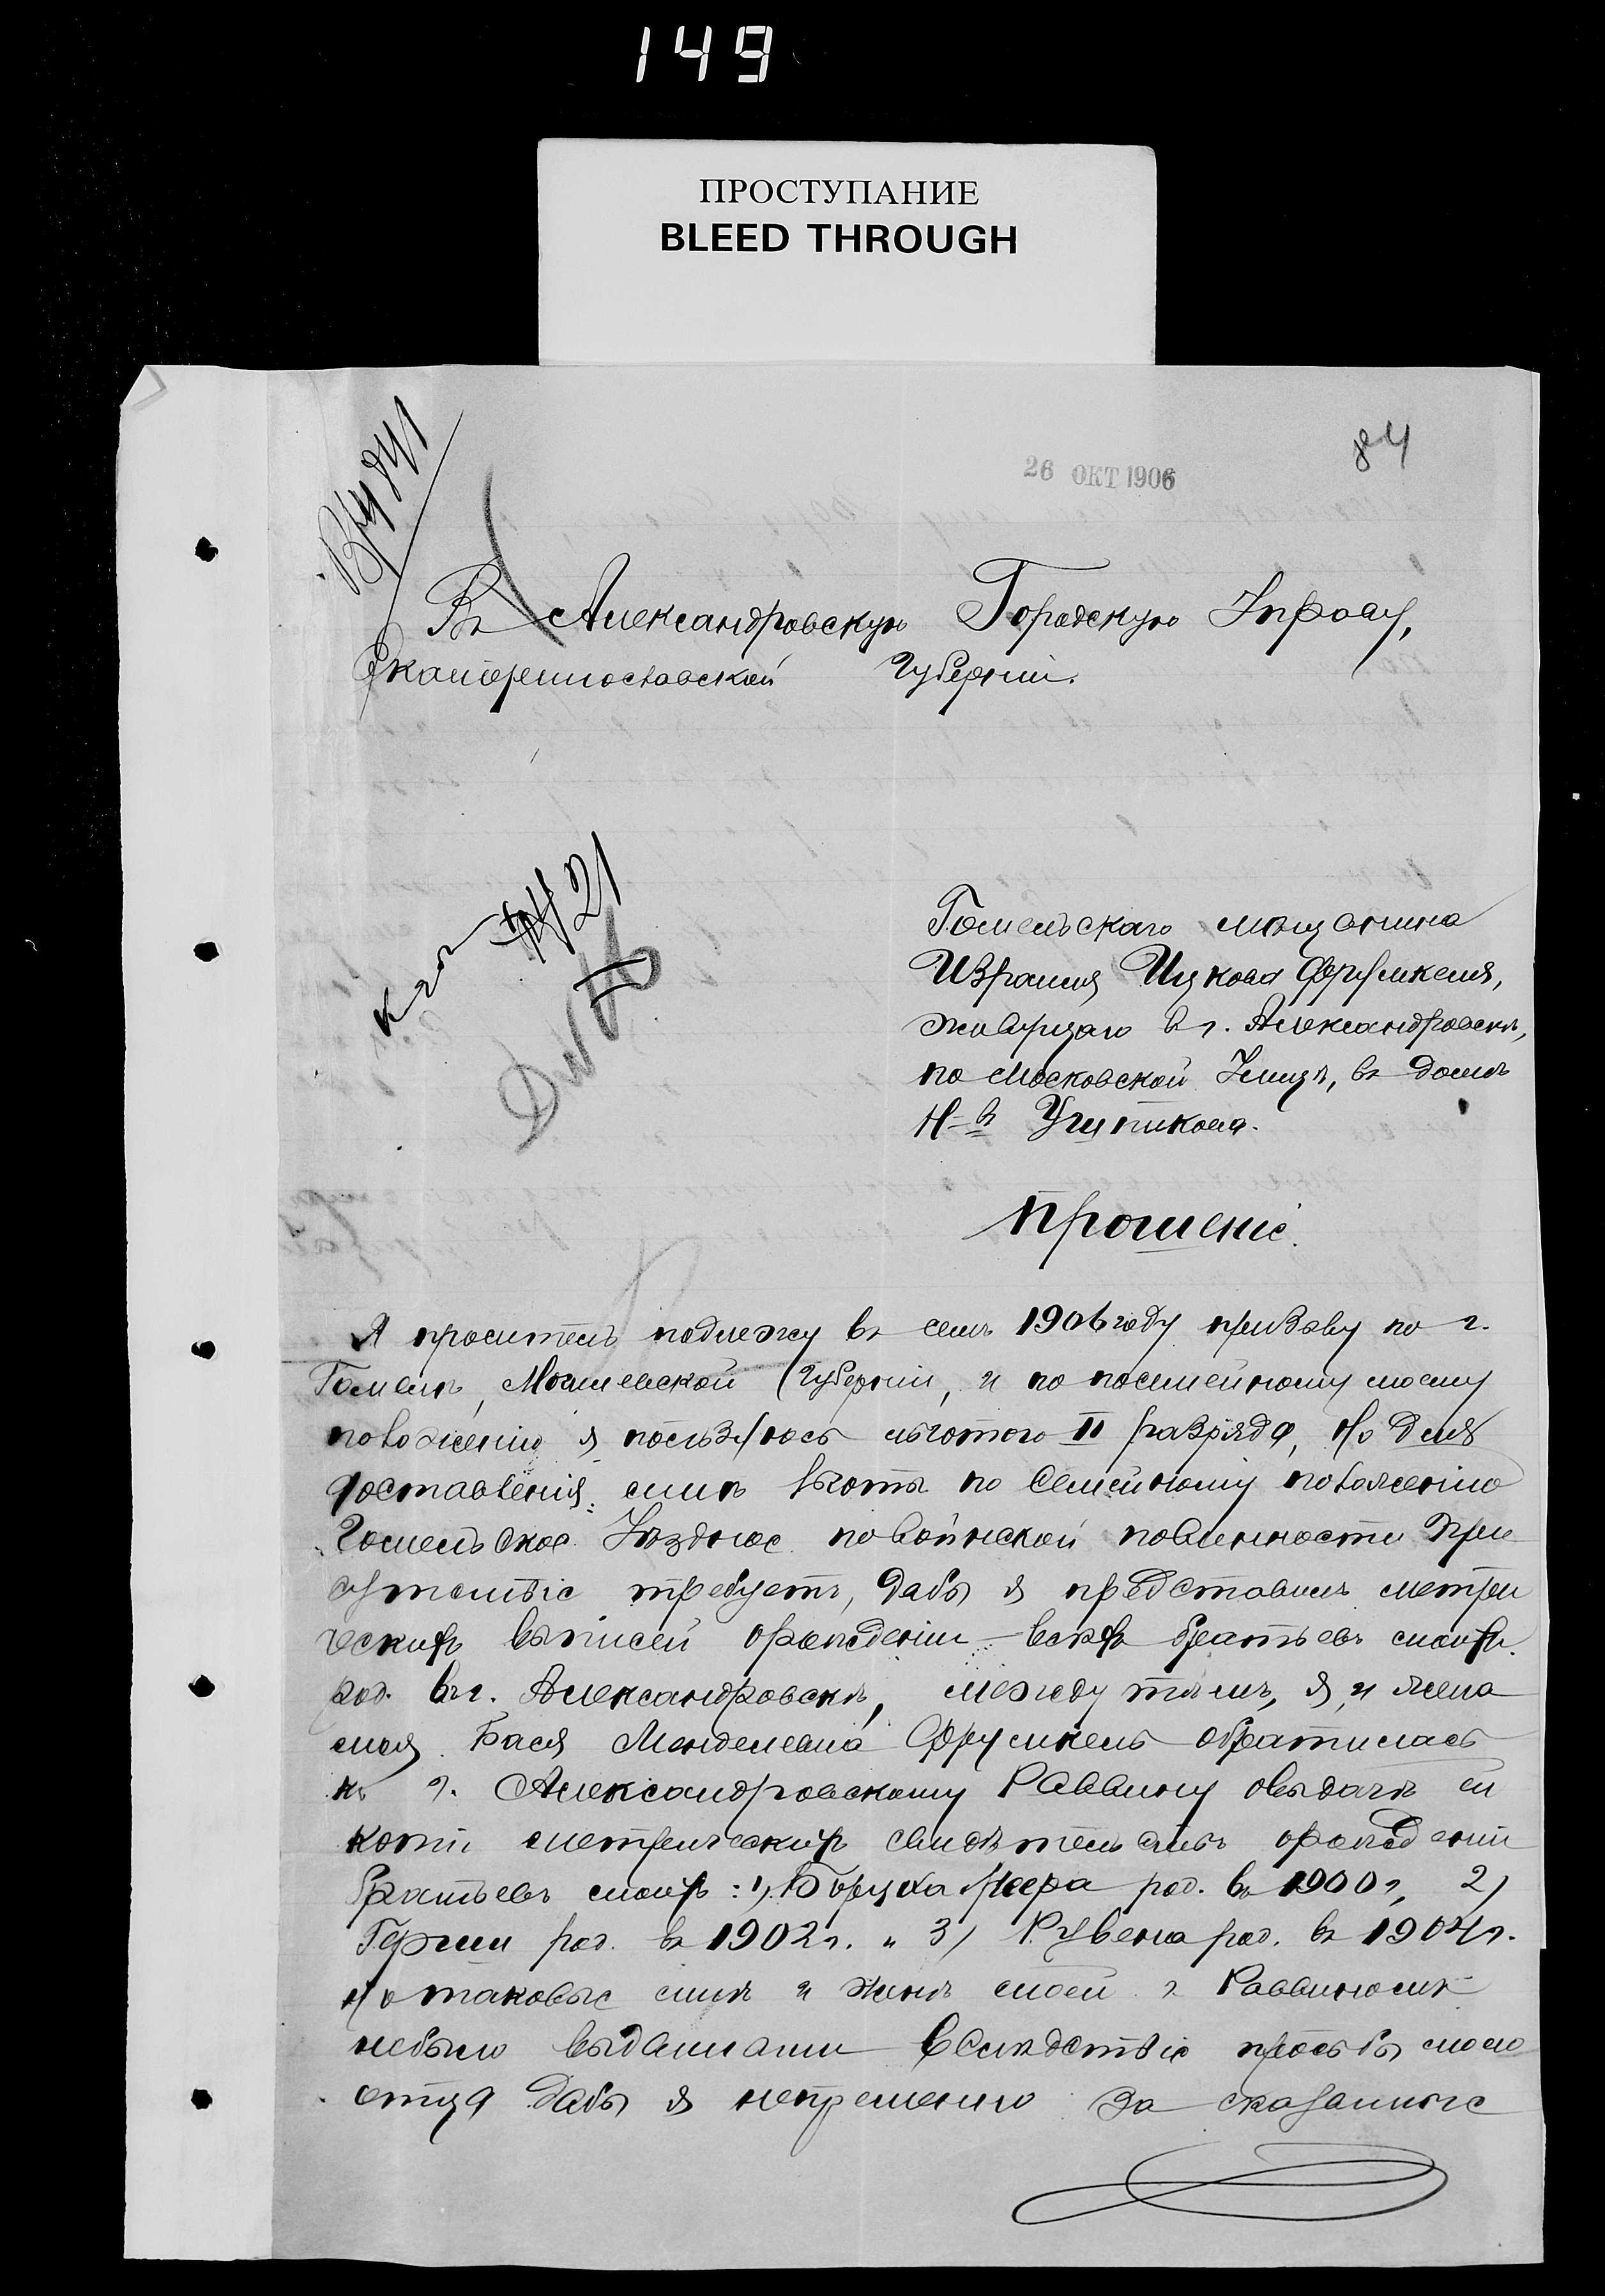 149
ПРОСТУПАНИЕ
BLEED THROUGH
84
26 ОКТ 1906
Въ Александровскую Городскую Управу,
Екатеринославской Губерніи.
Гомельскаго мѣщанина
Израиля Ицкова Фрумкеля,
живущаго въ г. Александровскѣ,
по Московской Улицѣ, въ домѣ
Н-въ
Прошеніе.
Я проситель подлежу въ семъ 1906 году призыву по г.
Гомелю, Могилевской Губерніи, и по посимейному моему
положенію я пользуюсь льготою II разряда, Но для
доставленія мнѣ льготы по семейному положенію
Гомельское Уѣздное по воинской повинности При
сутствіе требуетъ, дабы я представилъ метри
ческихъ выписей орожденіи всѣхъ братьевъ моихъ
род. въ г. Александровскѣ, между тѣмъ, я и жена
моя Бася Менделева Фрумкель обратилась
къ г. Александровскому Раввину овыдачѣ ей
копіи метрическихъ свидѣтельствъ орожденіи
братьевъ моихъ: 1) Боруха Меера род. въ 1900 г, 2)
Гершн род. въ 1902 г. и 3) Рувена род. въ 1904 г.
Но таковые мнѣ и женѣ моей г Раввиномъ
небыло выданами вслѣдствіе просьбы моего
отца дабы я непременно за сказанные